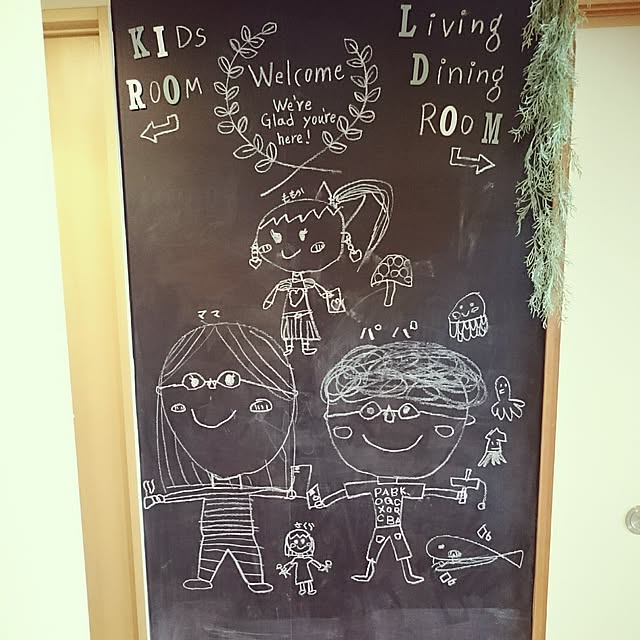 KIDS
ROOM
Welcome
We're
Glad you're
here!
Living
Dining
ROOM
ももか
ママ
パパ
PABK
さくら